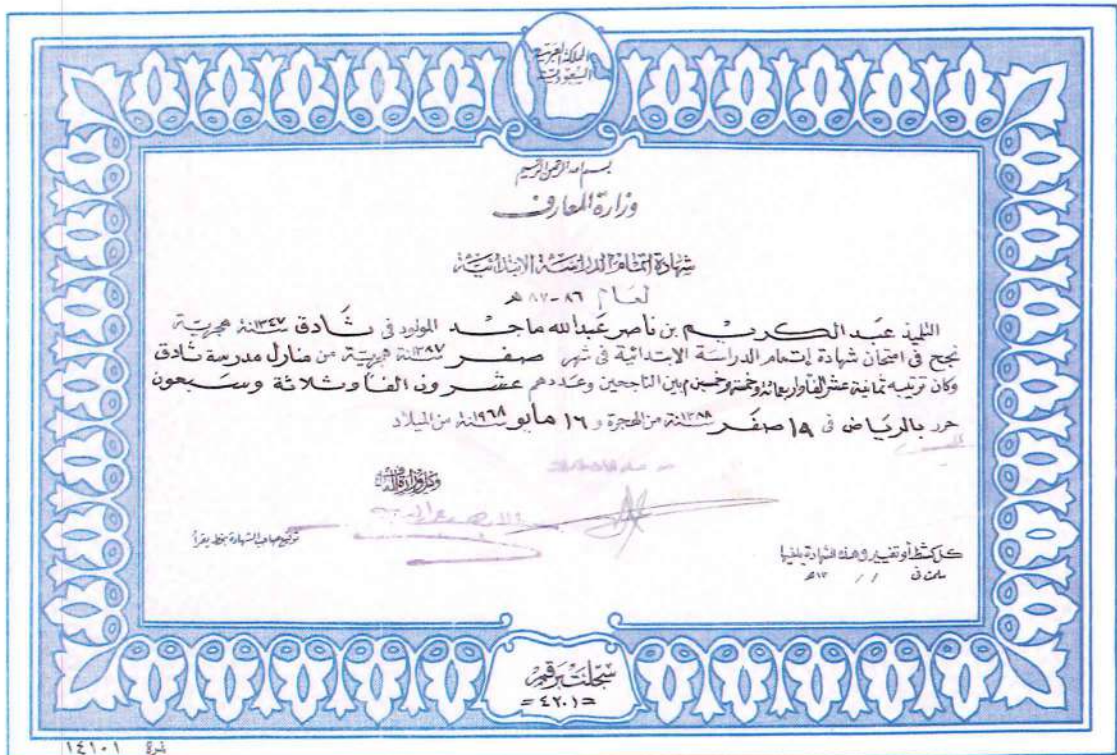 المملكة العربية
السعودية
بسم الله الرحمن الرحيم
وزارة المعارف
شهادة اتمام الدراسة الابتدائية
لعام ٨٦-٨٧ هـ
التلميذ عبد الكريم بن ناصر عبدالله ماجد المولود في ثادق سنة ١٣٤٧ هجرية
نجح في امتحان شهادة إتمام الدراسة الابتدائية في شهر صفر سنة ١٣٨٧ هجرية من منازل مدرسة ثادق
وكان ترتيبه ثمانية عشر الفا واربعمائة وخمسة وخمسين م بين الناجحين وعددهم عشرون الفا وثلاثة وسبعون
حرر بالرياض في ١٩ صفر سنة ١٣٨٨ من الهجرة و ١٦ مايو سنة ١٩٦٨ من الميلاد
وكيل وزارة
توقيع صاحب الشهادة بخط يقرأ
كل كشط أو تغيير في هذه الشهادة يلغيها
سلمت في / / ١٣ هـ
سجلت برقم
= ٤٢٠١ =
نمرة ١٤١٠١